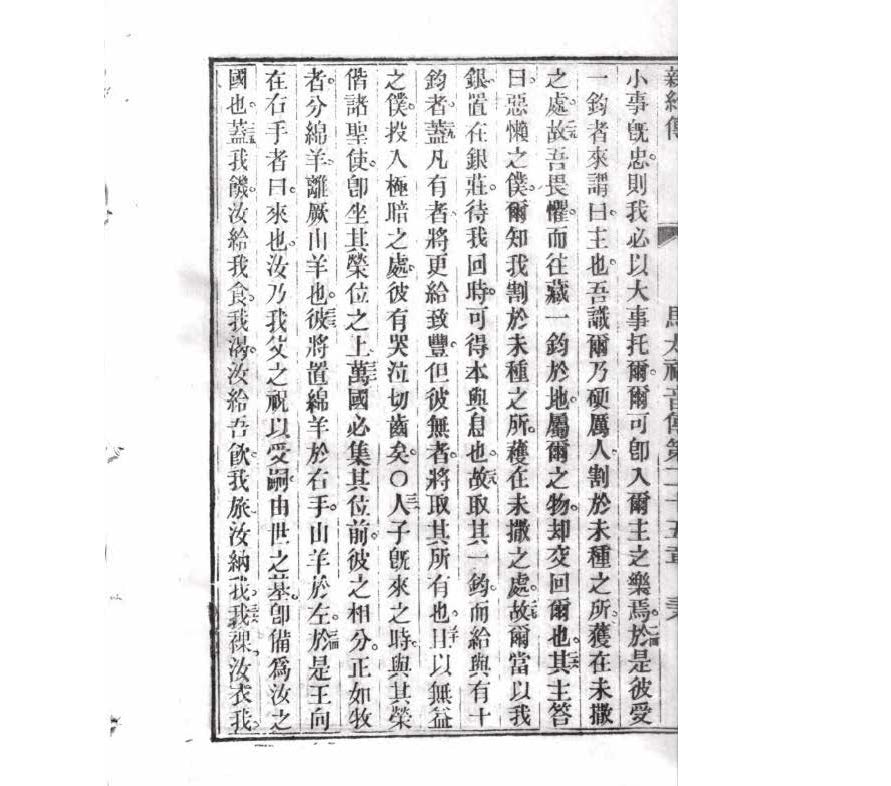 新約傳 馬太福音傳第二十五章
小事旣忠。則我必以大事托爾。爾可卽入爾主之樂焉。二四於是彼受
一鈞者來謂曰。主也。吾識爾乃硬厲人。割於未種之所。獲在未撒
之處。二五故吾畏懼。而往藏一鈞於地。屬爾之物。却交回爾也。二六其主答
曰。惡懶之僕。爾知我割於未種之所。穫在未撒之處。二七故爾當以我
銀置在銀莊。待我回時。可得本與息也。二八故取其一鈞。而給與有十
鈞者。二九蓋凡有者將更給致豐。但彼無者。將取其所有也。三十且以無益
之僕。投入極暗之處。彼有哭泣切齒矣。〇三一人子旣來之時。與其榮
偕諸聖使。卽坐其榮位之上。三二萬國必集其位前。彼之相分。正如牧
者。分綿羊。離厥山羊也。三三彼將置綿羊於右手。山羊於左。三四於是王向
在右手者曰。來也。汝乃我父之祝。以受嗣。由世之基。卽備爲汝之
國也。三五蓋我饑。汝給我食。我渴。汝給吾飲。我旅。汝納我。三六我裸。汝衣我。